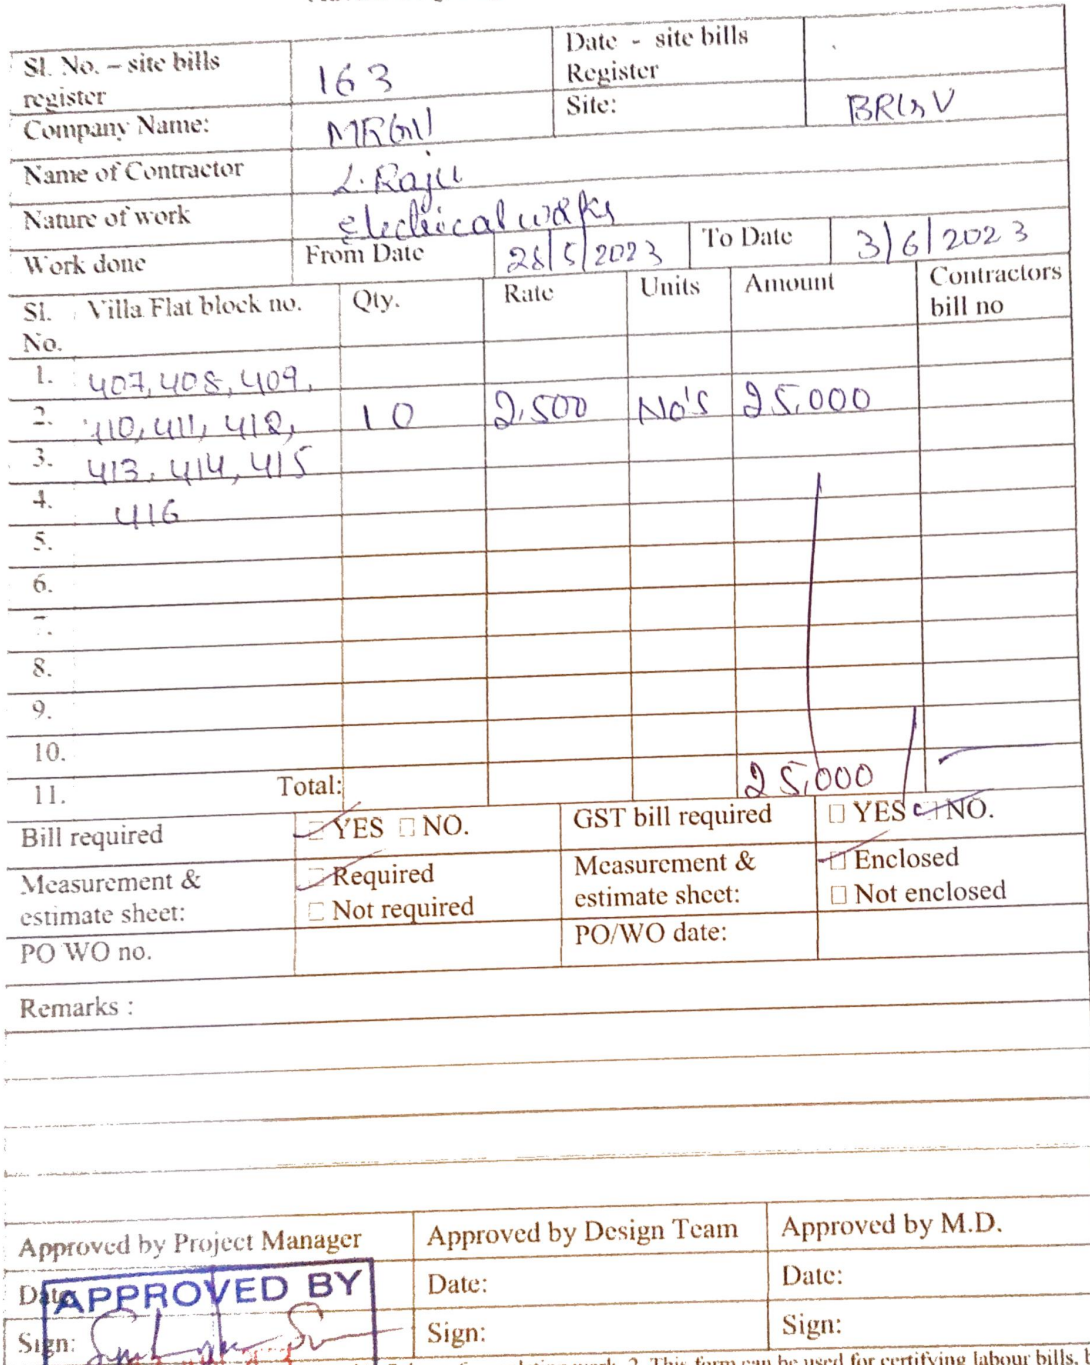 Sl. No. – site bills register 163 Date - site bills Register
Company Name: MRGV Site: BRGV
Name of Contractor L. Raju
Nature of work Electrical works
Work done From Date 28/5/2023 To Date 3/6/2023
Sl. No. Villa Flat block no. Qty. Rate Units Amount Contractors bill no
1. 407, 408, 409,
2. 410, 411, 412, 10 2,500 No's 25,000
3. 413, 414, 415
4. 416
5.
6.
7.
8.
9.
10.
11. Total: 25,000
Bill required YES NO. GST bill required YES NO.
Measurement & estimate sheet: Required Not required Measurement & estimate sheet: Enclosed Not enclosed
PO WO no. PO/WO date:
Remarks :
Approved by Project Manager Approved by Design Team Approved by M.D.
Date: Date: Date:
APPROVED BY
Sign: Sign: Sign:
2. This form can be used for certifying labour bills.